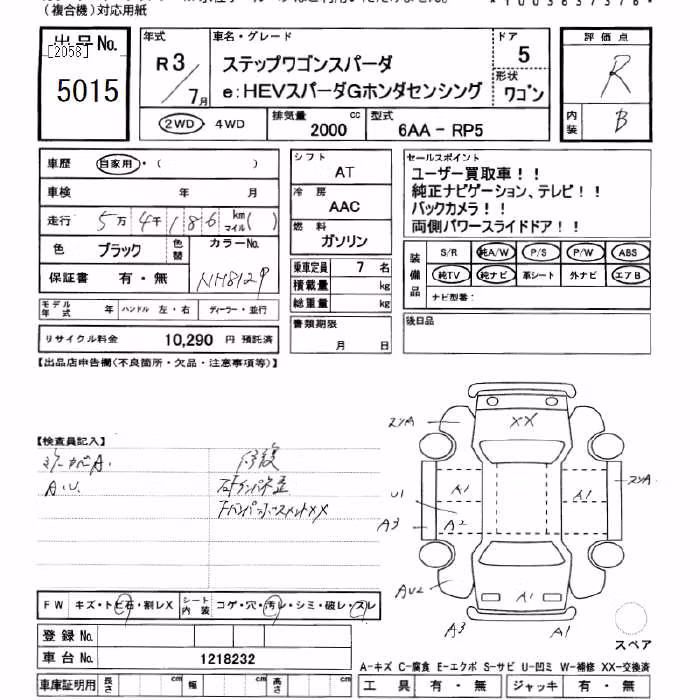 (複合機)対応用紙
*1003637376*
出品No.
[2058]
5015
年式
R3
7月
車名・グレード
ステップワゴンスパーダ
e:HEVスパーダGホンダセンシング
ドア
5
形状
ワゴン
評価点
R
内装
B
2WD・4WD
排気量
2000 cc
型式
6AA-RP5
車歴 自家用・( )
車検 年 月
走行 5万4千186 km マイル( )
色 ブラック 色替
カラーNo.
NH812P
保証書 有・無
モデル年式 年 ハンドル 左・右 ディーラー・並行
リサイクル料金 10,290 円 預託済
シフト
AT
冷房
AAC
燃料
ガソリン
乗車定員 7 名
積載量 kg
総重量 kg
書類期限
月 日
セールスポイント
ユーザー買取車!!
純正ナビゲーション、テレビ!!
バックカメラ!!
両側パワースライドドア!!
装備品
S/R 純A/W P/S P/W ABS
純TV 純ナビ 革シート 外ナビ エアB
ナビ型番:
後日品
【出品店申告欄(不良箇所・欠品・注意事項等)】
【検査員記入】
A.U.
修復
XX
A1
U1
A3
A2
A1
AU2
A1
A3
A1
スペア
FW キズ・トビ石・割レX シート内装 コゲ・穴・汚レ・シミ・破レ・スレ
登録No.
車台No. 1218232
車庫証明用 長さ cm 幅 cm 高さ cm
A-キズ C-腐食 E-エクボ S-サビ U-凹ミ W-補修 XX-交換済
工具 有・無 ジャッキ 有・無